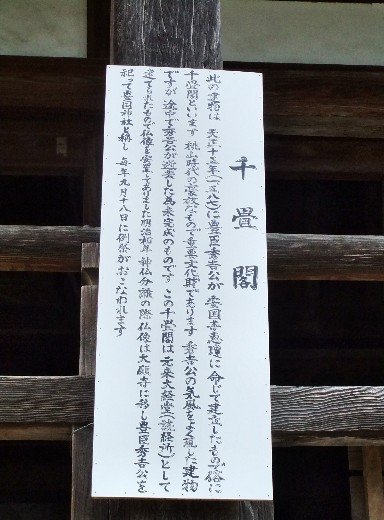 千畳閣
此の建物は 天正十五年(一五八七)に豊臣秀吉公が 安国寺恵瓊に 命じて建立したもので俗に
千畳閣といいます 桃山時代の豪放なもので重要文化財であります 秀吉公の気風をよく現した建物
ですが 途中で秀吉公が逝去した為未完成のものです この千畳閣は元来大経堂(読経所)として
建てられたもので仏像を安置してありましたが明治初年 神仏分離の際 仏像は大願寺に移し豊臣秀吉公を
祀って豊国神社と称し 毎年九月十八日に例祭がおこなわれます